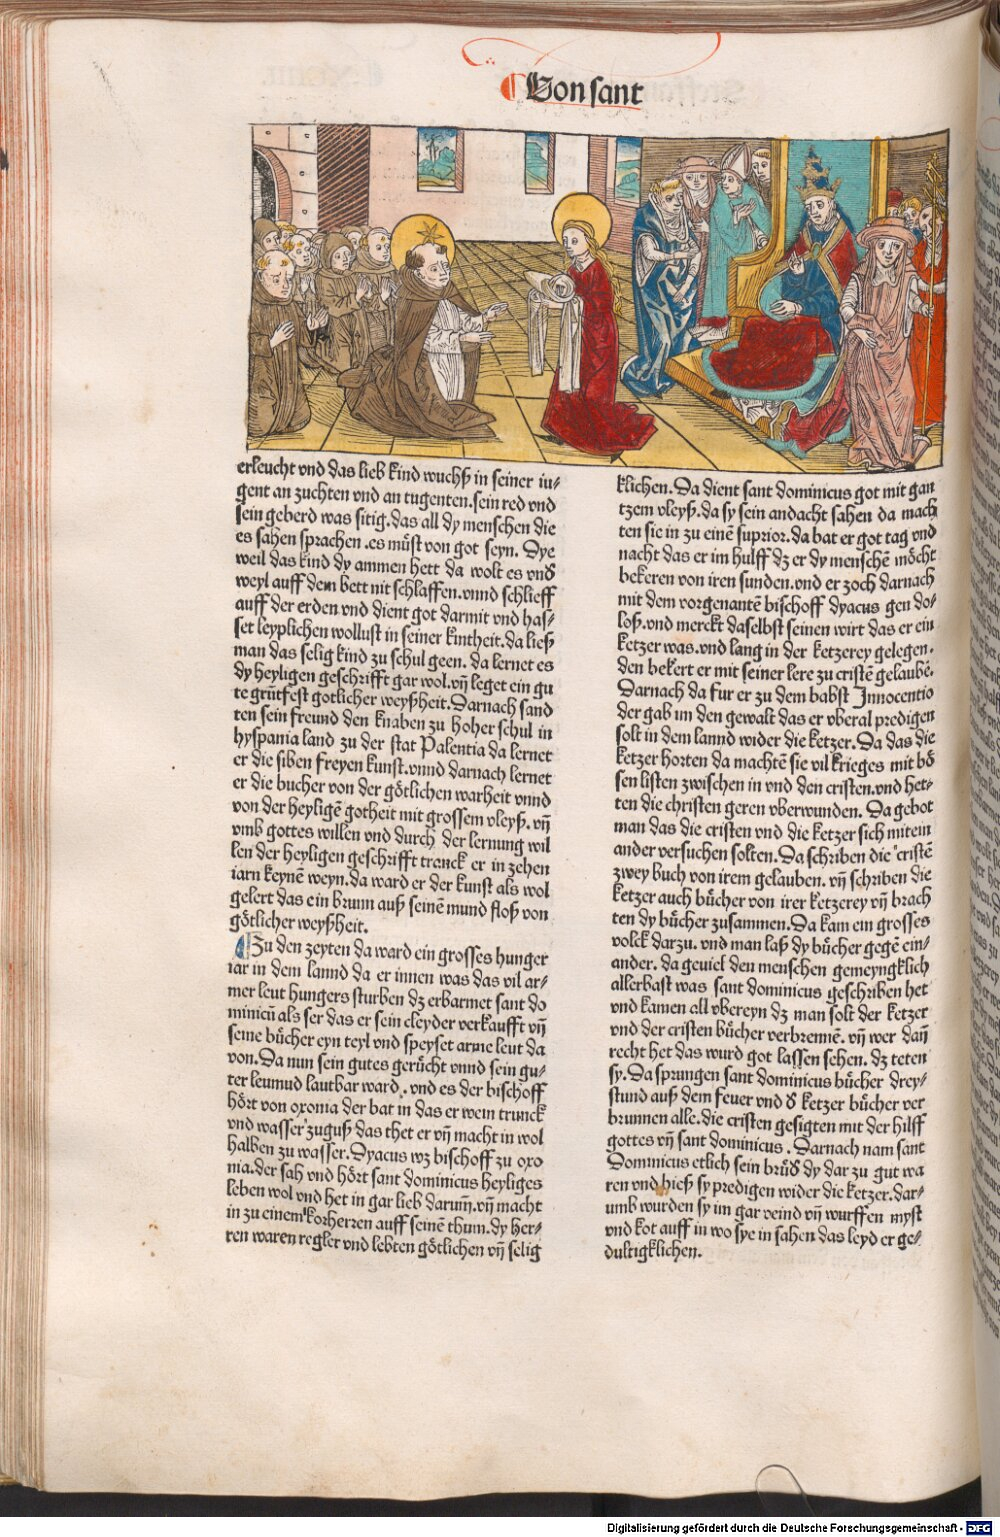 Von sant
erleucht vnd das lieb kind wuchß in seiner iu-
gent an zuchten vnd an tugenten. sein red vnd
sein geberd was sitig. das all dy menschen die
es sahen sprachen. es müst von got seyn. Dye
weil das kind dy ammen hett da wolt es vnd
weyl auff dem bett nit schlaffen. vnnd schlieff
auff der erden vnd dient got darmit vnd has-
set leyplichen wollust in seiner kintheit. da ließ
man das selig kind zu schul geen. da lernet es
dy heyligen geschrifft gar wol. vn̄ leget ein gu
te grūtfest gotlicher weyßheit. Darnach sand
ten sein freund den knaben zu hoher schul in
hyspania land zu der stat Palentia da lernet
er die siben freyen kunst. vnnd darnach lernet
er die bucher von der götlichen warheit vnnd
von der heyligē gotheit mit grossem vleyß. vn̄
vmb gottes willen vnd durch der lernung wil
len der heyligen geschrifft tranck er in zehen
iarn keynē weyn. da ward er der kunst als wol
gelert das ein brunn auß seinē mund floß von
götlicher weyßheit.
Zu den zeyten da ward ein grosses hunger
iar in dem lannd da er innen was das vil ar-
mer leut hungers sturben dz erbarmet sant do
minicū als ser das er sein cleyder verkaufft vn̄
seine bücher eyn teyl vnd speyset arme leut da
von. Da nun sein gutes gerücht vnnd sein gu-
ter leumud lautbar ward. vnd es der bischoff
hört von oxonia der bat in das er wein trunck
vnd wasser zuguß das thet er vn̄ macht in wol
halben zu wasser. Dyacus wz bischoff zu oxo
nia. der sah vnd hört sant dominicus heyliges
leben wol vnd het in gar lieb darum̄. vn̄ macht
in zu einem korherren auff seinē thum. dy her-
ren waren regler vnd lebten götlichen vn̄ selig
klichen. Da dient sant dominicus got mit gan
tzem vleyß. da sy sein andacht sahen da mach
ten sie in zu einē suprior. da bat er got tag vnd
nacht das er im hulff dz er dy menschē möcht
bekeren von iren sunden. vnd er zoch darnach
mit dem vorgenantē bischoff dyacus gen do-
loß. vnd merckt daselbst seinen wirt das er ein
ketzer was. vnd lang in der ketzerey gelegen.
den bekert er mit seiner lere zu cristē gelaubē.
Darnach da fur er zu dem babst Innocentio
der gab im den gewalt das er vberal predigen
solt in dem lannd wider die ketzer. Da das die
ketzer horten da machtē sie vil krieges mit bö
sen listen zwischen in vnd den cristen. vnd het-
ten die christen geren vberwunden. Da gebot
man das die cristen vnd die ketzer sich mitein
ander versuchen solten. Da schriben die cristē
zwey buch von irem gelauben. vn̄ schriben die
ketzer auch bücher von irer ketzerey vn̄ brach
ten dy bücher zusammen. Da kam ein grosses
volck darzu. vnd man laß dy bücher gegē ein-
ander. da geviel den menschen gemeyngklich
allerbast was sant dominicus geschriben het
vnd kamen all vbereyn dz man solt der ketzer
vnd der cristen bücher verbrennē. vn̄ wer dan̄
recht het das wurd got lassen sehen. dz teten
sy. Da sprungen sant dominicus bücher drey-
stund auß dem feuer vnd d̕ ketzer bücher ver
brunnen alle. die cristen gesigten mit der hilff
gottes vn̄ sant dominicus. Darnach nam sant
Dominicus etlich sein brüd̕ dy dar zu gut wa
ren vnd hieß sy predigen wider die ketzer. dar-
umb wurden sy im gar veind vn̄ wurffen myst
vnd kot auff in wo sye in sahen das leyd er ge-
dultigklichen.
Digitalisierung gefördert durch die Deutsche Forschungsgemeinschaft - DFG